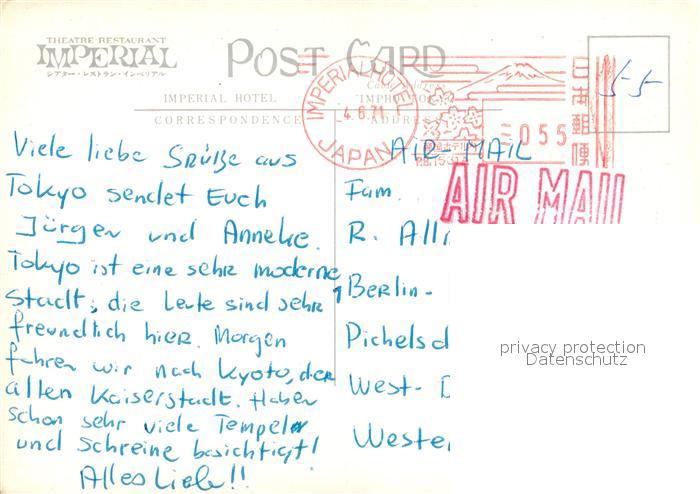 THEATRE RESTAURANT
IMPERIAL
シアター・レストラン・インペリアル
POST CARD
IMPERIAL HOTEL
CORRESPONDENCE
ADDRESS
IMPERIAL HOTEL
4.6.71
JAPAN
055
日本郵便
55
Viele liebe Grüße aus
Tokyo sendet Euch
Jürgen und Anneke.
Tokyo ist eine sehr moderne
Stadt, die Leute sind sehr
freundlich hier. Morgen
fahren wir nach Kyoto, der
alten Kaiserstadt. Haben
schon sehr viele Tempel
und Schreine besichtigt!
Alles Liebe!!
AIR MAIL
AIR MAIL
Fam.
R. All
1 Berlin-
Pichelsd
West-
Weste
privacy protection
Datenschutz